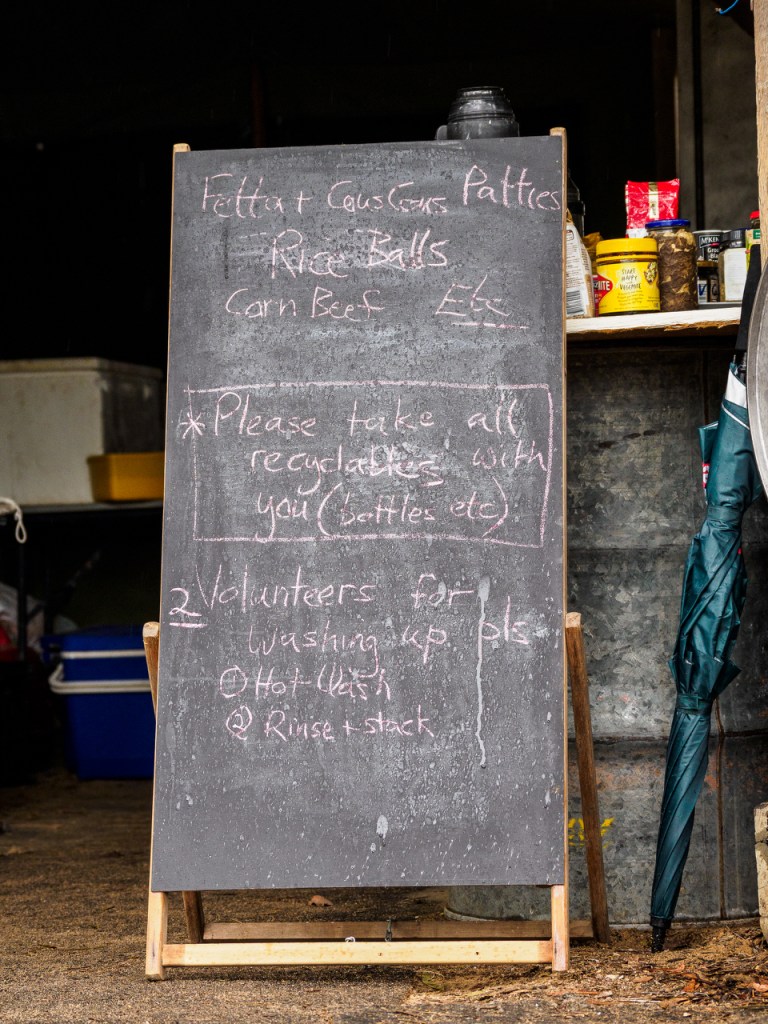 Fetta + CousCous Patties
Rice Balls
Corn Beef Etc
* Please take all
recyclables with
you (bottles etc)
2 Volunteers for
washing up pls
① Hot Wash
② Rinse + stack